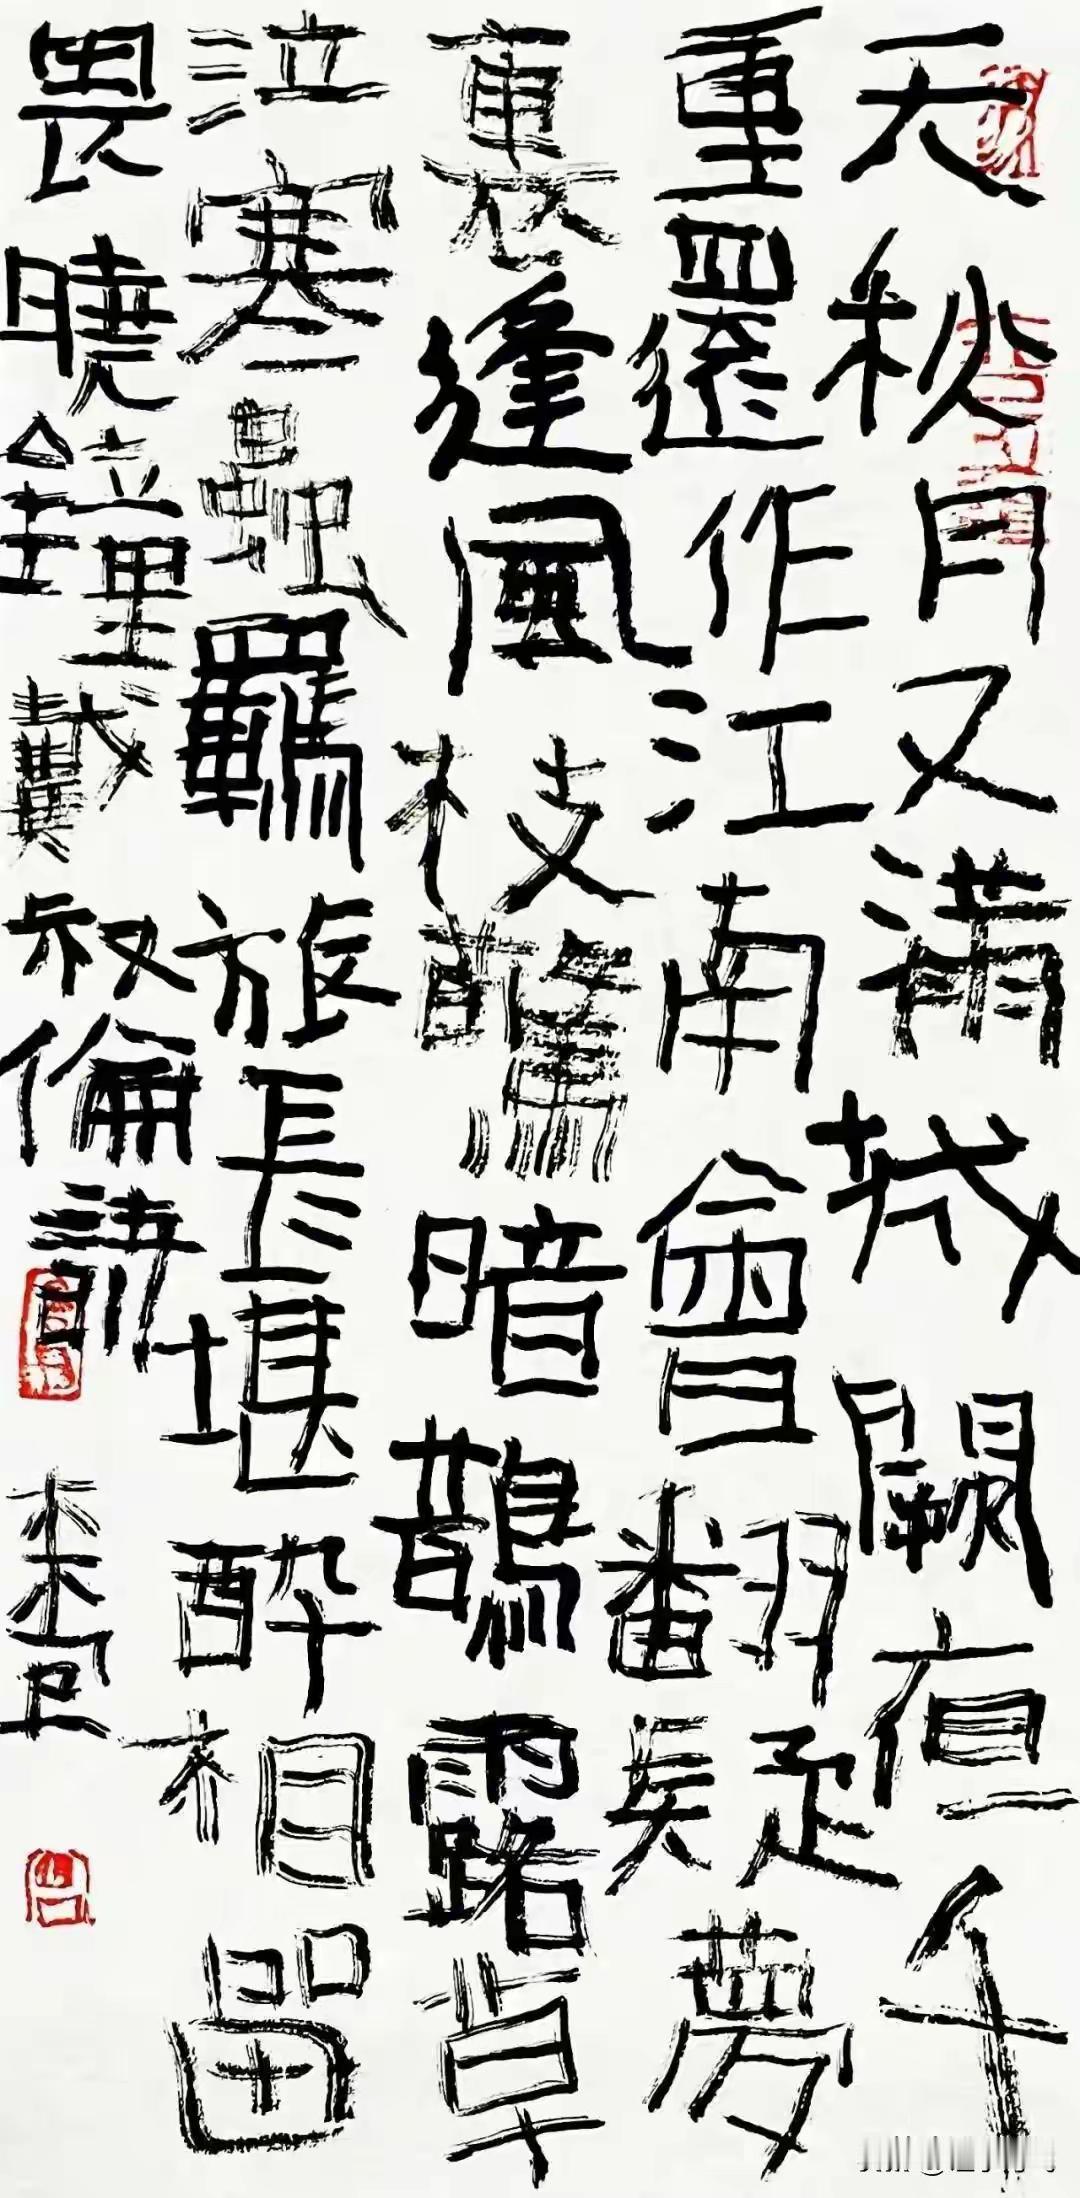 天秋月又滿城闕夜千
重還作江南會翻疑夢
裏逢風枝驚暗鵲露草
泣寒蟲羈旅長堪醉相留
畏曉鐘戴叔倫詩